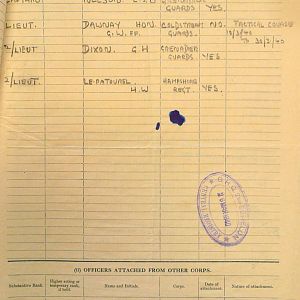 GUARDS YES.
LIEUT. DAWNAY HON. COLDSTREAM NO. TACTICAL COURSE
G.W. ff. GUARDS. 18/3/40
To 30/3/40
2/LIEUT DIXON. G H GRENADIER
GUARDS YES.
2/LIEUT. LE-PATOUREL HAMPSHIRE
H.W REGT. YES.
(ii) OFFICERS ATTACHED FROM OTHER CORPS.
Substantive Rank. Higher acting or temporary rank, if held. Name and Initials. Corps. Date of attachment. Nature of attachment.